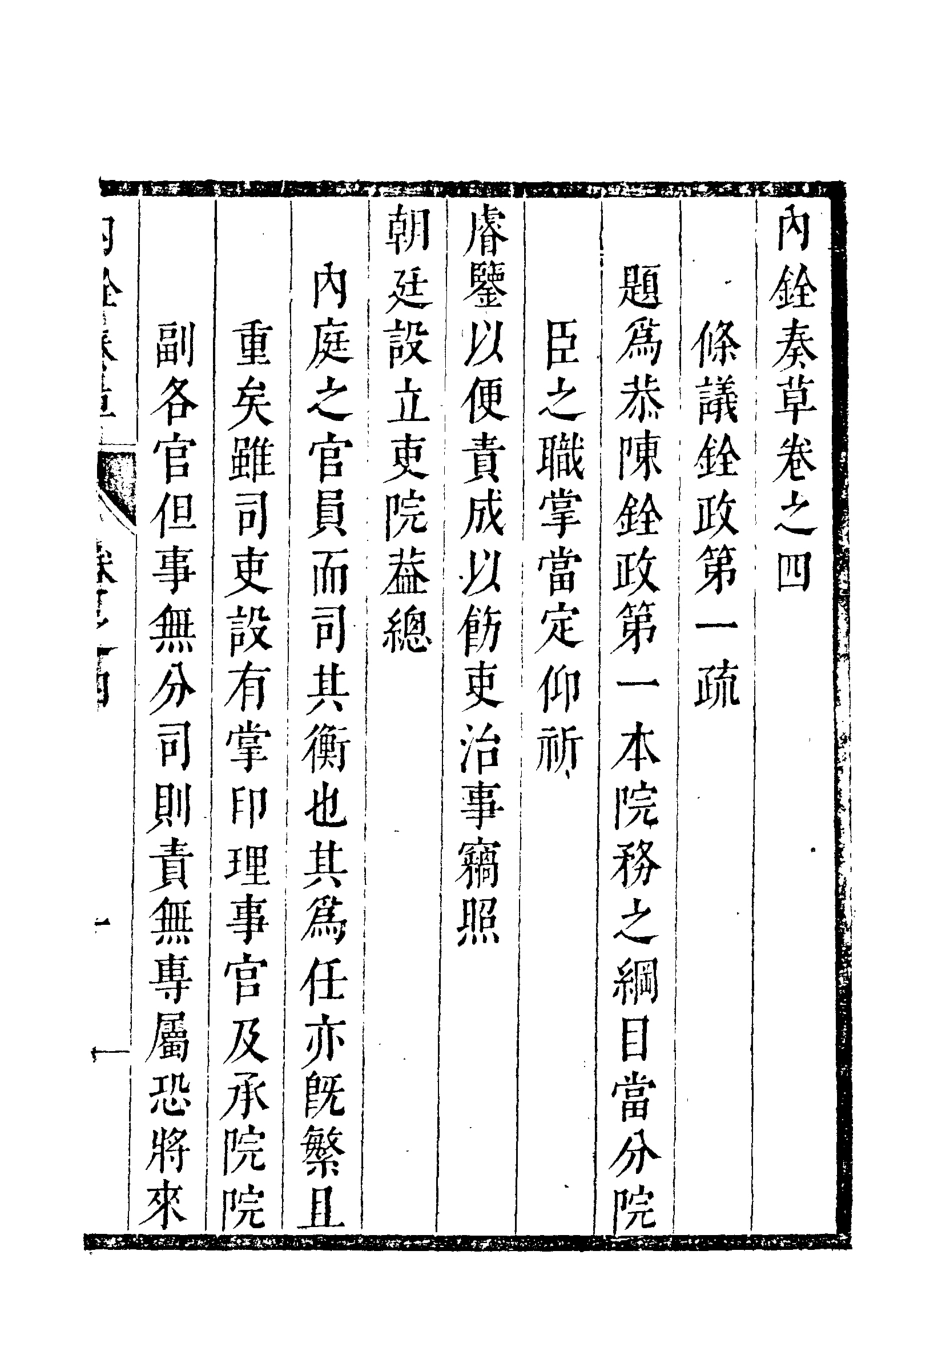 內銓奏草卷之四
條議銓政第一疏
題爲恭陳銓政第一本院務之綱目當分院
臣之職掌當定仰祈
睿鑒以便責成以飭吏治事竊照
朝廷設立吏院葢總
內庭之官員而司其衡也其爲任亦旣繁且
重矣雖司吏設有掌印理事官及承院院
副各官但事無分司則責無專屬恐將來
內銓奏草
卷之四
一